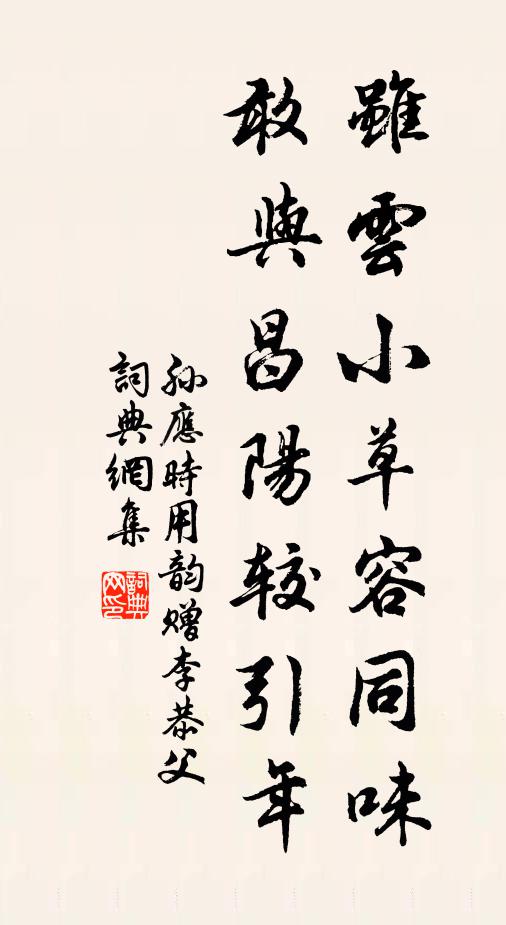 雖雲小草容同味
敢與昌陽較引年
孙應時用韵赠李恭父
詞典網集
詞典网印